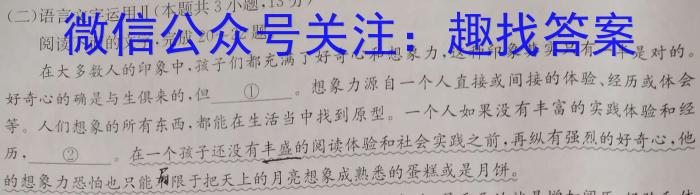 (二)语言文字运用Ⅱ(本题共3小题,13分)
微信公众号关注:趣找答案
阅读
在大多数人的印象中,孩子们都充满了好奇心和想象力,这种印象 是对的。
好奇心的确是与生俱来的,但 ① 。想象力源自一个人直接或间接的体验、经历或体会
等。人们想象的所有东西,都能在生活当中找到原型。一个人如果没有丰富的实践体验和经
历, ② 。在一个孩子还没有丰盛的阅读体验和社会实践之前,再纵有强烈的好奇心,他
的想象力恐怕也只能局限于把天上的月亮想象成熟悉的蛋糕或是月饼。